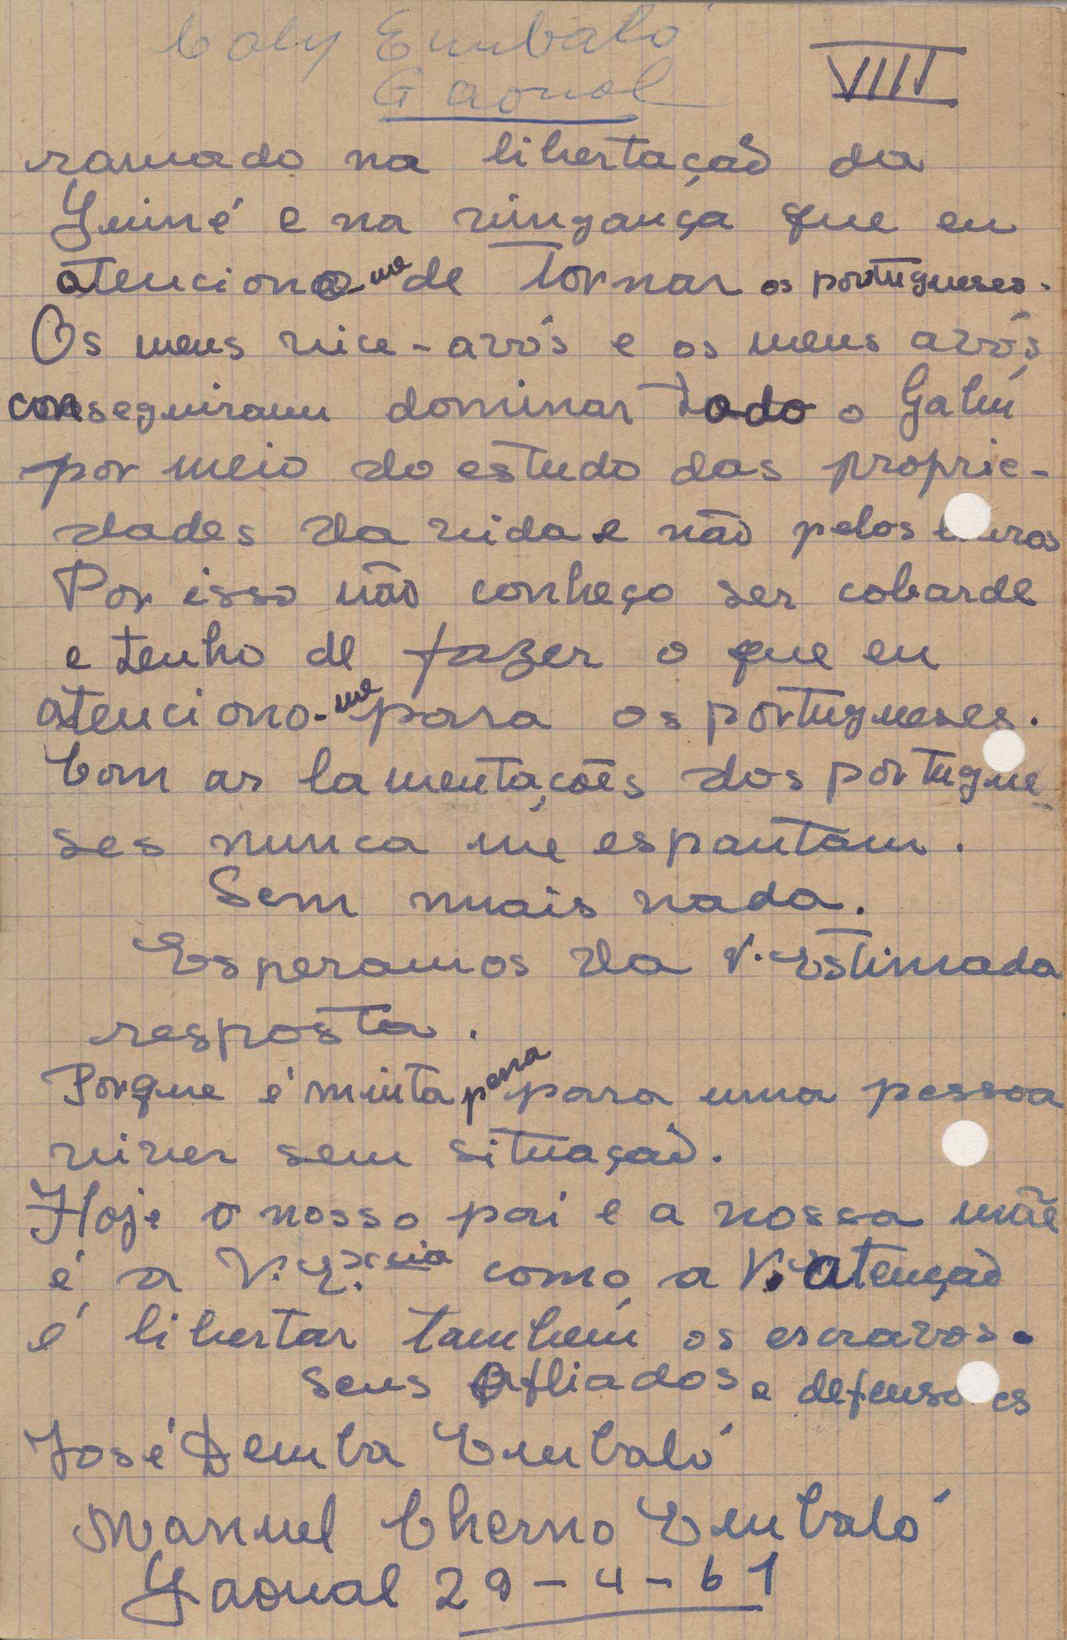 Coly Embaló
Gaoual
VIII
ramado na libertação da
Guiné e na vingança que eu
atenciono-me de tornar os portugueses.
Os meus vice-avós e os meus avós
conseguiram dominar todo o Gabú
por meio do estudo das proprie-
dades da vida e não pelos
Por isso não conheço ser cobarde
e tenho de fazer o que eu
atenciono-me para os portugueses.
Com as lamentações dos portugue-
ses nunca me espantam.
Sem mais nada.
Esperamos da V. Estimada
resposta.
Porque é muita pena para uma pessoa
viver sem situação.
Hoje o nosso pai e a nossa mãe
é a V. Ex.cia como a V. atenção
é libertar também os escravos.
Seus afliados e defensores
José Demba Embaló
Manuel Cherno Embaló
Gaoual 29-4-61